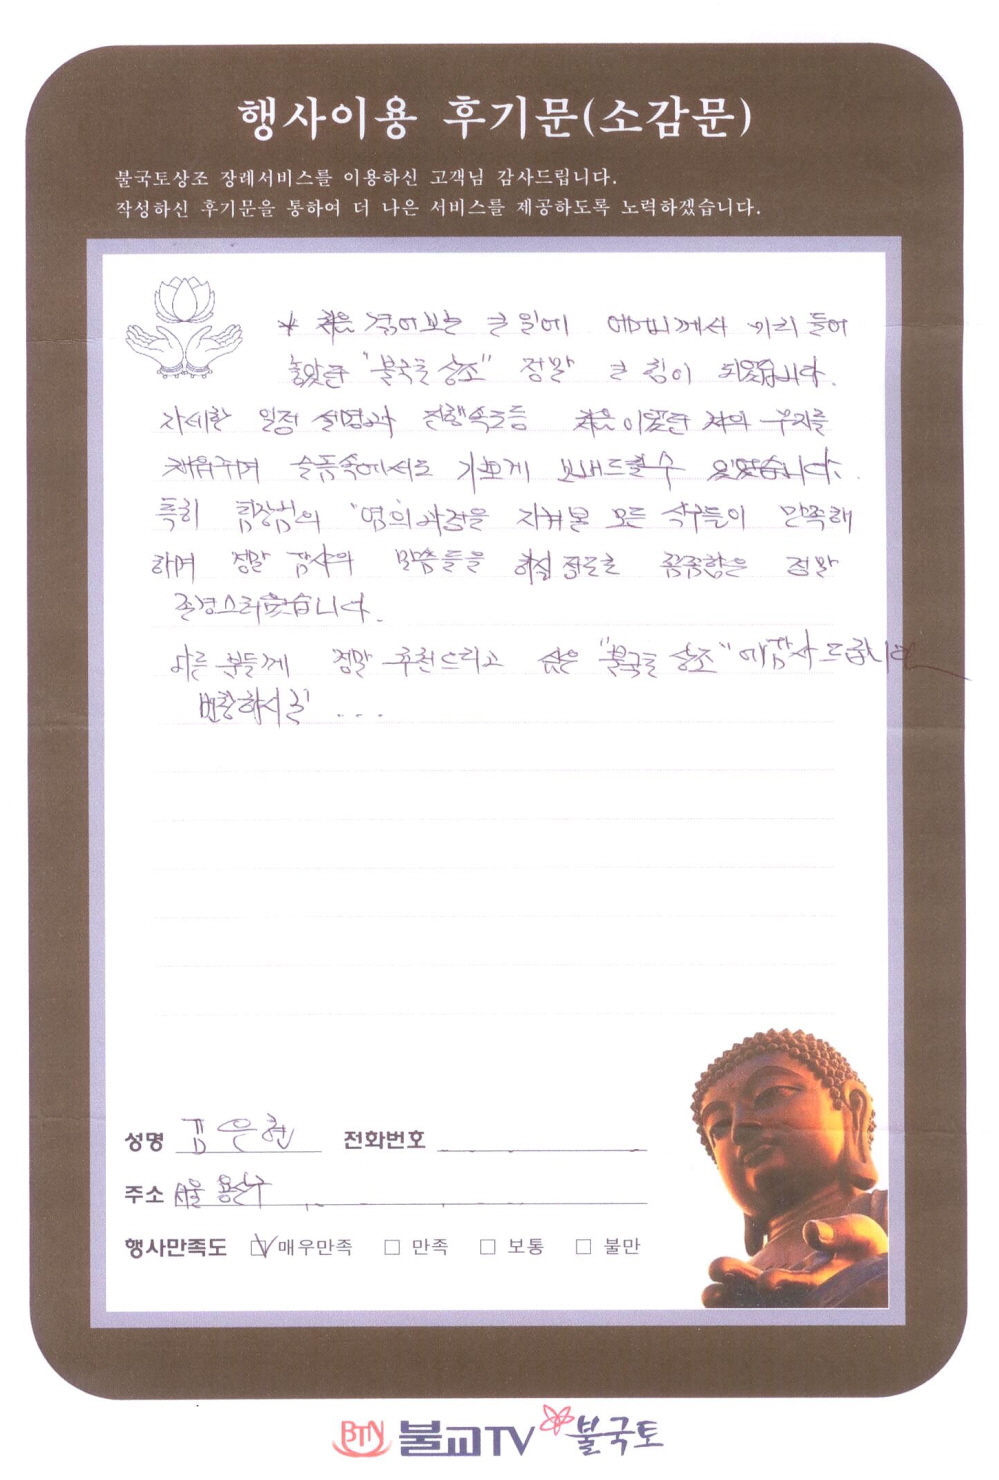 행사이용 후기문(소감문)
불국토상조 장례서비스를 이용하신 고객님 감사드립니다.
작성하신 후기문을 통하여 더 나은 서비스를 제공하도록 노력하겠습니다.
* 처음 겪어보는 큰 일에 어머니께서 미리 들어
놓았던 "불국토 상조" 정말 큰 힘이 되었습니다.
자세한 일정 설명과 진행속도등 처음이었던 저의 무지를
채워주며 슬픔속에서도 기쁘게 보내드릴수 있었습니다.
특히 팀장님의 "염의 과정을 지켜본 모든 식구들이 만족해
하며 정말 감사의 말씀들을 하실 정도로 꼼꼼함은 정말
존경스러웠습니다.
다른 분들께 정말 추천드리고 싶은 "불국토 상조"에 감사드립니다
번창하시길 ...
성명 김은천 전화번호
주소 서울 용산구
행사만족도 ☑ 매우만족 □ 만족 □ 보통 □ 불만
BTN 불교TV 불국토